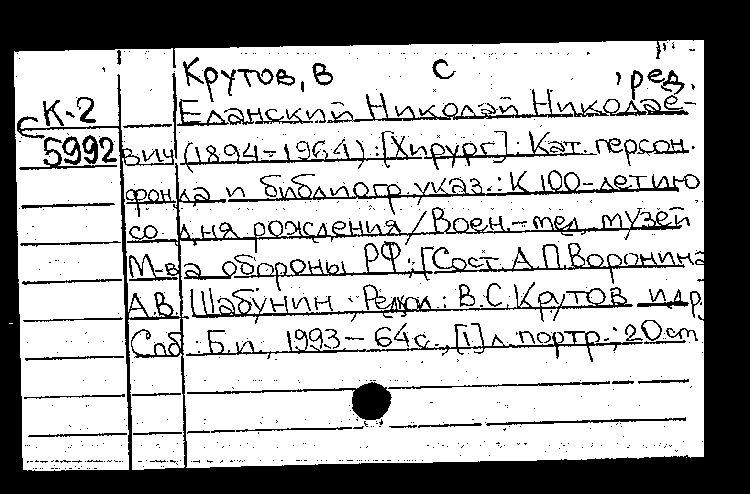 Крутов, В С , ред.
К-2 Еланский Николай Николае-
5992 вич (1894-1964) : [Хирург] : Кат. персон.
фонда и библиогр. указ. : К 100-летию
со дня рождения / Воен.-мед. музей
М-ва обороны РФ; [Сост. А.П. Воронина
А.В. Шабунин ; Редкол.: В.С. Крутов и др.
Спб : Б.и., 1993 - 64 с., [1] л. портр.; 20 cm